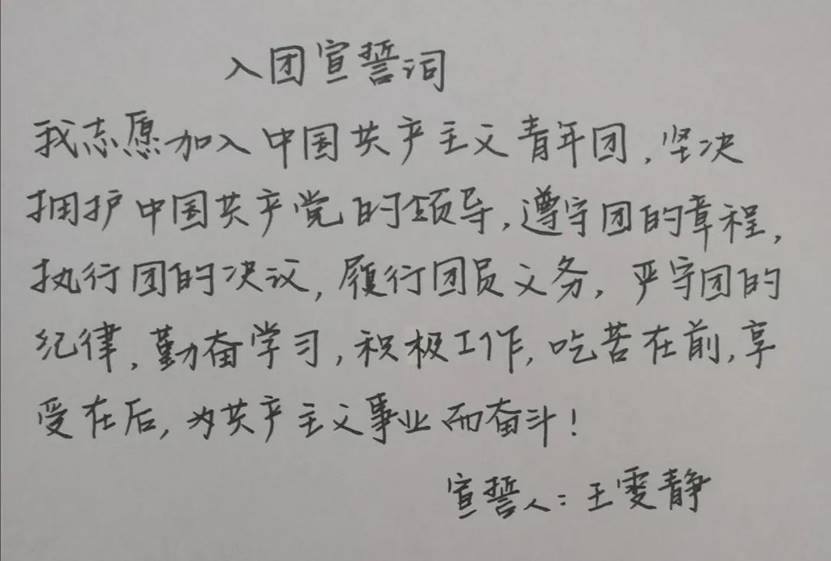 入团宣誓词
我志愿加入中国共产主义青年团,坚决
拥护中国共产党的领导,遵守团的章程,
执行团的决议,履行团员义务,严守团的
纪律,勤奋学习,积极工作,吃苦在前,享
受在后,为共产主义事业而奋斗!
宣誓人:王雯静